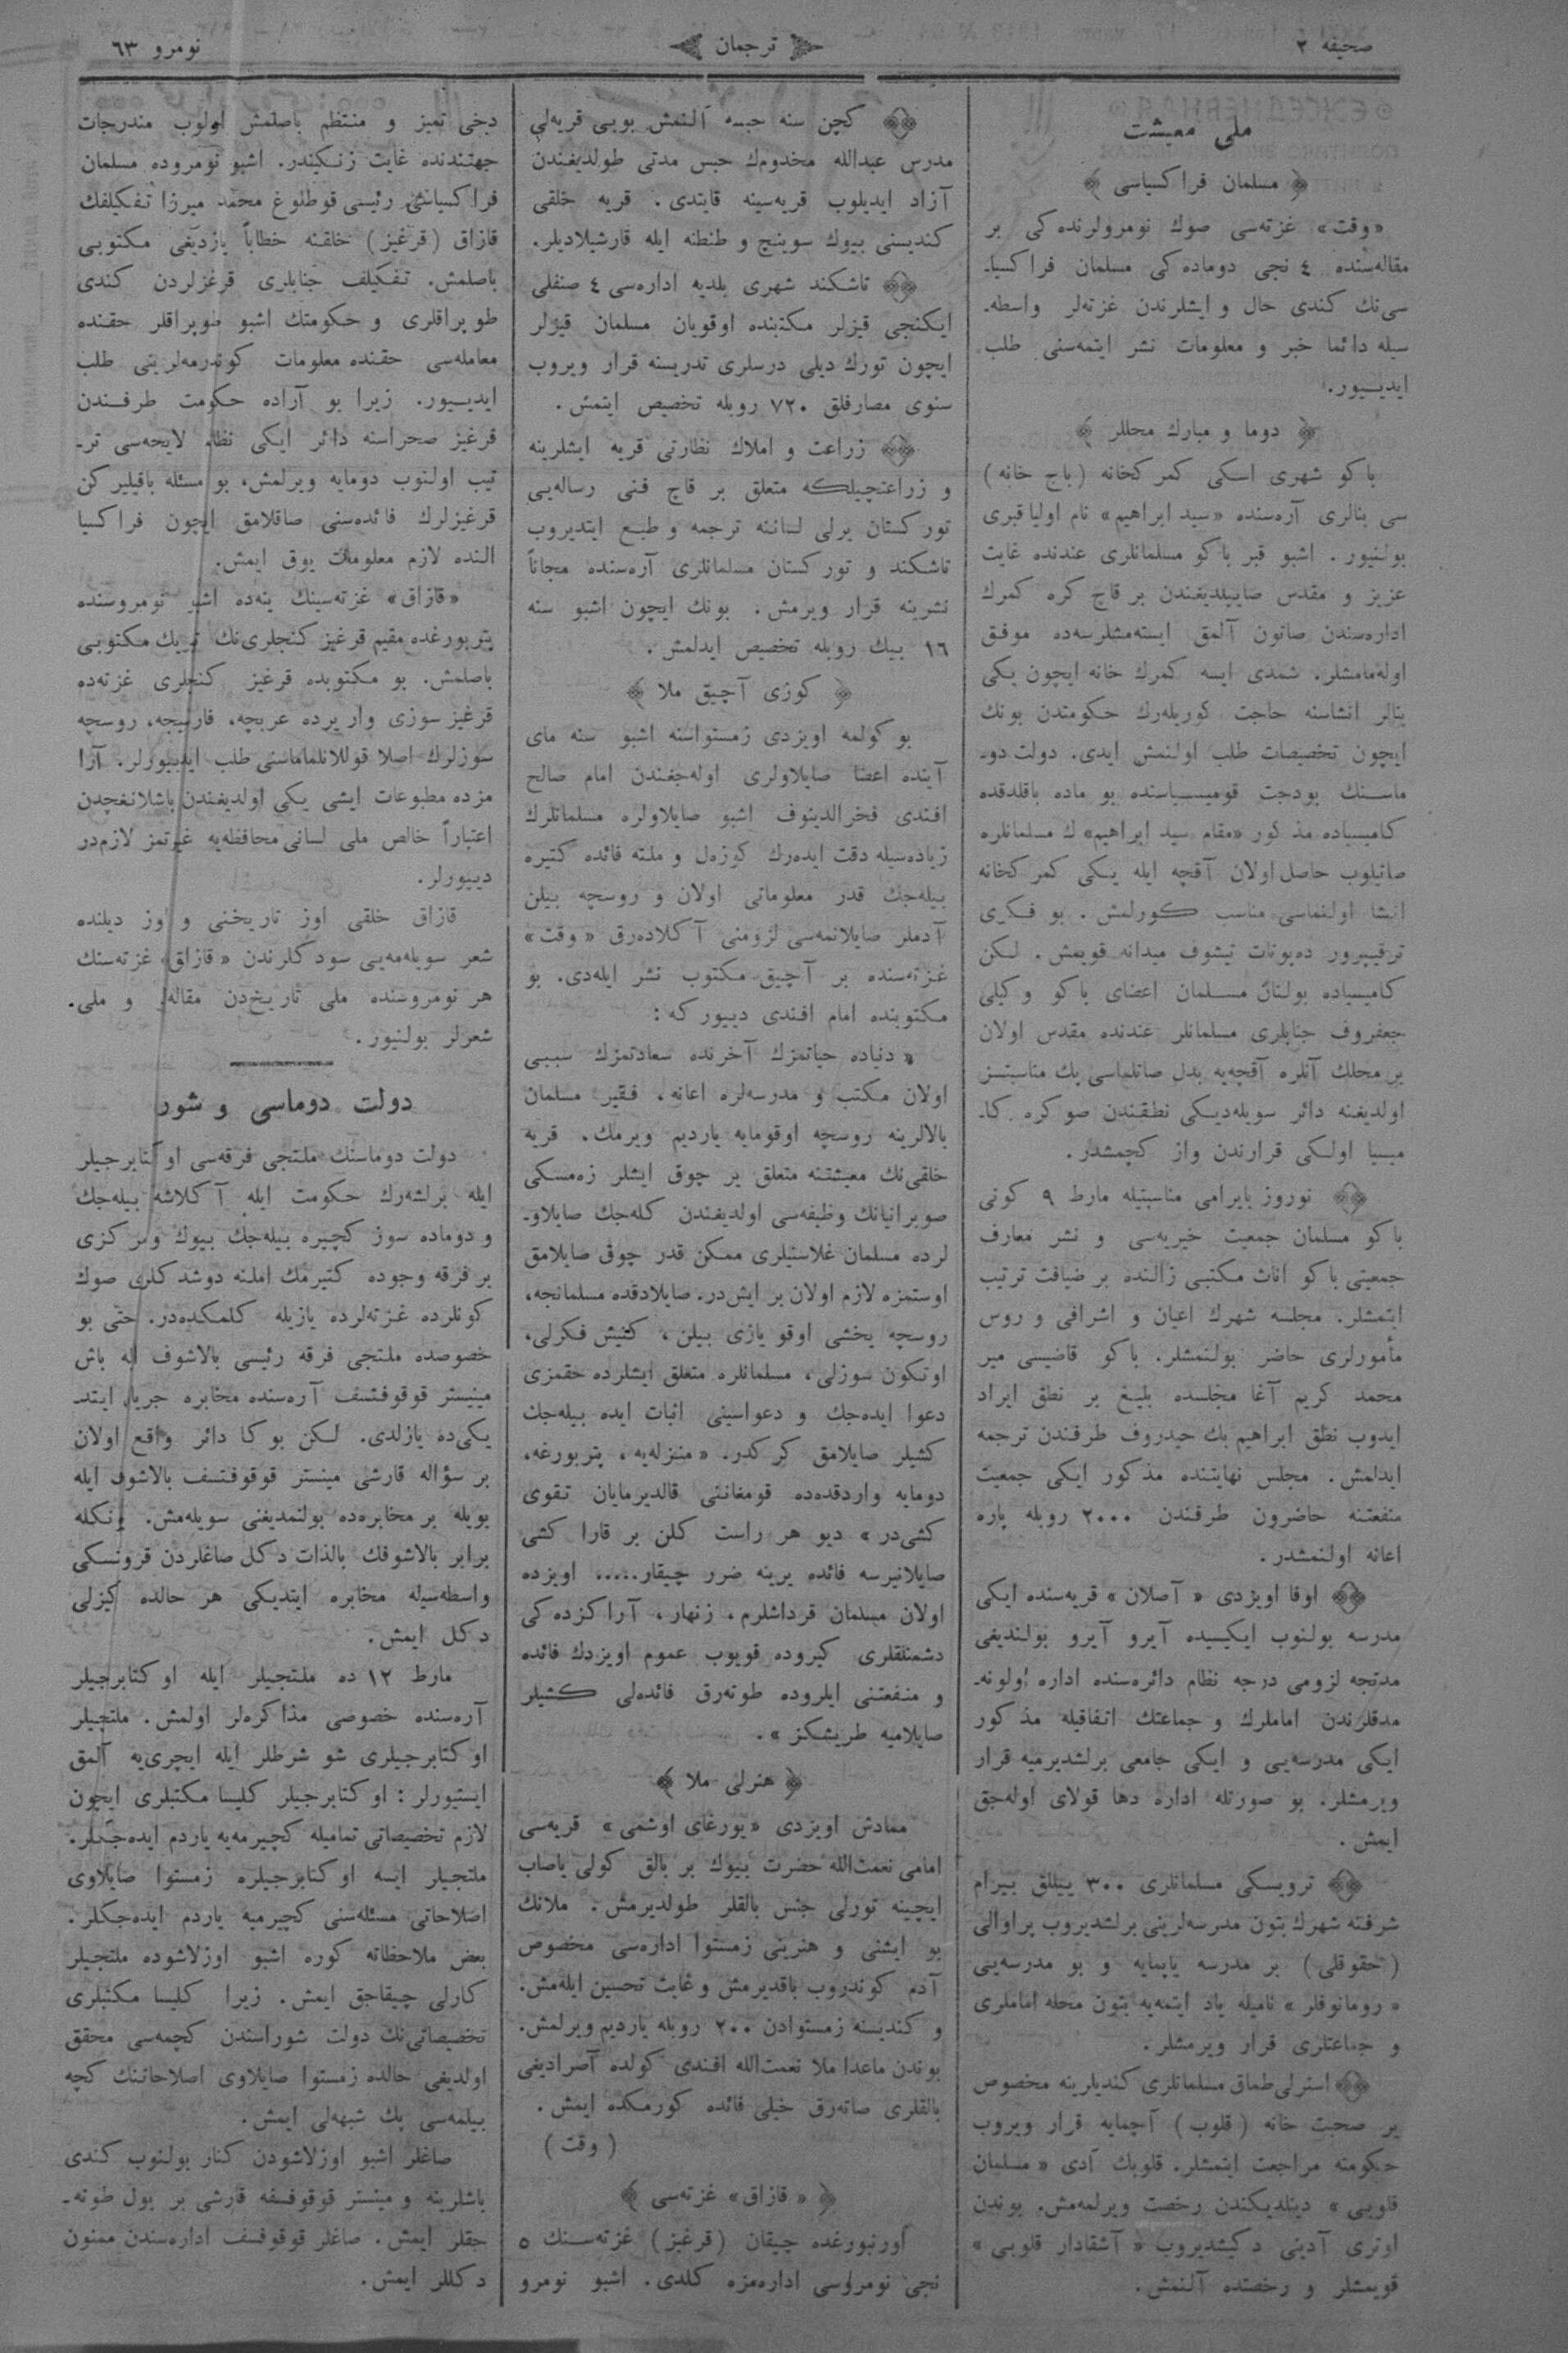 صحیفه ۲
ترجمان
نومرو ٦٣
ملی معیشت
﴿ مسلمان فراکسیاسی ﴾
«وقت» غزته‌سی صوك نومرولرنده‌کی بر
مقاله‌سنده ٤ نجی دوماده‌کی مسلمان فراکسیا-
سی‌نك کندی حال و ایشلرندن غزته‌لر واسطه-
سیله دائما خبر و معلومات نشر ایتمه‌سنی طلب
ایدییور.
﴿ دوما و مبارك محللر ﴾
باکو شهری اسکی کمرکخانه (باج خانه)
سی بنالری آره‌سنده «سید ابراهیم» نام اولیا قبری
بولنیور. اشبو قبر باکو مسلمانلری عندنده غایت
عزیز و مقدس صاییلدیغندن بر قاچ کره کمرك
اداره‌سندن صاتون آلمق ایسته‌مشلرسه‌ده موفق
اوله‌مامشلر. شمدی ایسه کمرك خانه ایچون یکی
بنالر انشاسنه حاجت کوریله‌رك حکومتدن بونك
ایچون تخصیصات طلب اولنمش ایدی. دولت دو-
ماسـنك بودجت قومیسـیاسنده بو ماده باقلدقده
کامیسیاده مذکور «مقام سید ابراهیم» ك مسلمانلره
صاتیلوب حاصل اولان آقچه ایله یـکی کمرکخانه
انشا اولنماسی مناسب کورلمش. بو فـکری
ترقیپرور ده‌پوتات تیشوف میدانه قویمش. لـکن
کامیسیاده بولنان مسـلمان اعضای باکو وکیلی
جعفروف جنابلری مسلمانلر عندنده مقدس اولان
بر محلك آنلره آقچه‌یه بدل صاتلماسی پك مناسبتسز
اولدیغنه دائر سویله‌دیـکی نطقندن صوکره کا-
میسیا اولـکی قرارندن واز کچمشدر.
نوروز بایرامی مناسبتیله مارط ٩ کونی
باکو مسلمان جمعیت خیریه‌سی و نشر معارف
جمعیتی باکو اناث مکتبی زالنده بر ضیافت ترتیب
ایتمشلر. مجلسه شهرك اعیان و اشرافی و روس
مأمورلری حاضر بولنمشلر. باکو قاضیسی میر
محمد کریم آغا مجلسده بلیغ بر نطق ایراد
ایدوب نطق ابراهیم بك حیدروف طرفندن ترجمه
ایدلمش. مجلس نهایتنده مذکور ایکی جمعیت
منفعتنه حاضرون طرفندن ٢٠٠٠ روبله پاره
اعانه اولنمشدر.
اوفا اویزدی «آصلان» قریه‌سنده ایکی
مدرسه بولنوب ایکیسیده آیرو آیرو بولندیغی
مدتجه لزومی درجه نظام دائره‌سنده اداره اولونه-
مدقلرندن اماملرك و جماعتك اتفاقیله مذکور
ایکی مدرسه‌یی و ایکی جامعی برلشدیرمیه قرار
ویرمشلر. بو صورتله اداره دها قولای اوله‌جق
ایمش.
ترویسکی مسلمانلری ٣٠٠ ییللق بیرام
شرفنه شهرك بتون مدرسه‌لرینی برلشدیروب پراوالی
(حقوقلی) بر مدرسه یاپمایه و بو مدرسه‌یی
«رومانوفلر» نامیله یاد ایتمه‌یه بتون محله اماملری
و جماعتلری قرار ویرمشلر.
استرلی‌طماق مسلمانلری کندیلرینه مخصوص
بر صحبت خانه (قلوب) آچمایه قرار ویروب
حکومته مراجعت ایتمشلر. قلوبك آدی «مسلمان
قلوبی» دینلدیکندن رخصت ویرلمه‌مش. بوندن
اوتری آدینی دکیشدیروب «آشقادار قلوبی»
قویمشلر و رخصتده آلنمش.
کچن سنه حبسه آلنمش بوبی قریه‌لی
مدرس عبدالله مخدومك حبس مدتی طولدیغندن
آزاد ایدیلوب قریه‌سینه قایتدی. قریه خلقی
کندیسنی بیوك سوینچ و طنطنه ایله قارشیلادیلر.
تاشکند شهری بلدیه اداره‌سی ٤ صنفلی
ایکنجی قیزلر مکتبنده اوقویان مسلمان قیزلر
ایچون تورك دیلی درسلری تدریسنه قرار ویروب
سنوی مصارفلق ٧٢٠ روبله تخصیص ایتمش.
زراعت و املاك نظارتی قریه ایشلرینه
و زراعتچیلکه متعلق بر قاچ فنی رساله‌یی
تورکستان یرلی لساننه ترجمه و طبع ایتدیروب
تاشکند و تورکستان مسلمانلری آره‌سنده مجاناً
نشرینه قرار ویرمش. بونك ایچون اشبو سنه
١٦ بیك روبله تخصیص ایدلمش.
﴿ کوزی آچیق ملا ﴾
بوکولمه اویزدی زمستواسنه اشبو سنه مای
آینده اعضا صایلاولری اوله‌جغندن امام صالح
افندی فخرالدینوف اشبو صایلاولره مسلمانلرك
زیاده‌سیله دقت ایده‌رك کوزه‌ل و ملته فائده کتیره
بیله‌جك قدر معلوماتی اولان و روسچه بیلن
آدملر صایلانمه‌سی لزومنی آکلاده‌رق «وقت»
غزته‌سنده بر آچیق مکتوب نشر ایله‌دی. بو
مکتوبنده امام افندی دییورکه:
«دنیاده حیاتمزك آخرنده سعادتمزك سببی
اولان مکتب و مدرسه‌لره اعانه، فقیر مسلمان
بالالرینه روسچه اوقومایه یاردیم ویرمك. قریه
خلقی‌نك معیشتنه متعلق بر چوق ایشلر زه‌مسکی
صوبرانیانك وظیفه‌سی اولدیغندن کله‌جك صایلاو-
لرده مسلمان غلاسنیلری ممکن قدر چوق صایلامق
اوستمزه لازم اولان بر ایش‌در. صایلادقده مسلمانجه،
روسچه یخشی اوقو یازی بیلن، کنیش فکرلی،
اوتکون سوزلی، مسلمانلره متعلق ایشلرده حقمزی
دعوا ایده‌جك و دعواسینی اثبات ایده بیله‌جك
کشیلر صایلامق کرکدر. «منزله‌یه، پتربورغه،
دومایه واردقده‌ده قومغاننی قالدیرمایان تقوی
کشی‌در» دیو هر راست کلن بر قارا کشی
صایلانیرسه فائده یرینه ضرر چیقار..... اویزده
اولان مسلمان قرداشلرم، زنهار، آراکزده‌کی
دشمنلقلری کیروده قویوب عموم اویزدك فائده
و منفعتنی ایلروده طوته‌رق فائده‌لی کشیلر
صایلامیه طریشکز».
﴿ هنرلی ملا ﴾
ممادش اویزدی «یورغای اوشمی» قریه‌سی
امامی نعمت‌الله حضرت بیوك بر بالق کولی یاصاب
ایچینه تورلی جنس بالقلر طولدیرمش. ملانك
بو ایشنی و هنرینی زمستوا اداره‌سی مخصوص
آدم کوندروب باقدیرمش و غایت تحسین ایله‌مش.
و کندیسنه زمستوادن ٢٠٠ روبله یاردیم ویرلمش.
بوندن ماعدا ملا نعمت‌الله افندی کولده آصرادیغی
بالقلری صاته‌رق خیلی فائده کورمکده ایمش.
(وقت)
﴿ «قازاق» غزته‌سی ﴾
اورنبورغده چیقان (قرغیز) غزته‌سـنك ٥
نجی نومروسی اداره‌مزه کلدی. اشبو نومرو
دخی تمیز و منتظم باصلمش اولوب مندرجات
جهتندنده غایت زنکیندر. اشبو نومروده مسلمان
فراکسیاسی رئیسی قوطلوغ محمد میرزا تفکیلفك
قازاق (قرغیز) خلقنه خطاباً یازدیغی مکتوبی
باصلمش. تفکیلف جنابلری قرغزلردن کندی
طوپراقلری و حکومتك اشبو طوپراقلر حقنده
معامله‌سی حقنده معلومات کوندرمه‌لرینی طلب
ایدییور. زیرا بو آراده حکومت طرفـندن
قرغیز صحراسنه دائر ایکی نظام لایحه‌سی تر-
تیب اولنوب دومایه ویرلمش، بو مسئله باقیلیرکن
قرغیزلرك فائده‌سنی صاقلامق ایچون فراکسیا
النده لازم معلومات یوق ایمش.
«قازاق» غزته‌سینك ینه‌ده اشبو نومروسنده
پتربورغده مقیم قرغیز کنجلری‌نك تبریك مکتوبی
باصلمش. بو مکتوبده قرغیز کنجلری غزته‌ده
قرغیز سوزی وار یرده عربچه، فارسیجه، روسچه
سوزلرك اصلا قوللانلماماسنی طلب ایدییورلر. آرا
مزده مطبوعات ایشی یکی اولدیغندن باشلانغچدن
اعتباراً خالص ملی لسانی محافظه‌یه غیرتمز لازم‌در
دییورلر.
قازاق خلقی اوز تاریخنی و اوز دیلنده
شعر سویله‌مه‌یی سودکلرندن «قازاق» غزته‌سنك
هر نومروسنده ملی تاریخ‌دن مقاله‌لر و ملی
شعرلر بولنیور.
دولت دوماسی و شورا
دولت دوماسنك ملتجی فرقه‌سی اوکتابرجیلر
ایله برلشه‌رك حکومت ایله آکلاشه بیله‌جك
و دوماده سوز کچیره بیله‌جك بیوك و مرکزی
بر فرقه وجوده کتیرمك املنه دوشدکلری صوك
کونلرده غزته‌لرده یازیله کلمکده‌در. حتی بو
خصوصده ملتجی فرقه رئیسی بالاشوف ایله باش
مینیستر قوقوفتسف آره‌سنده مخابره جریان ایتد-
یکی‌ده یازلدی. لـکن بوکا دائر واقع اولان
بر سؤاله قارشی مینستر قوقوفتسف بالاشوف ایله
بویله بر مخابره‌ده بولنمدیغنی سویله‌مش. بونکله
برابر بالاشوفك بالذات دکل صاغلردن قروپنسکی
واسطه‌سیله مخابره ایتدیکی هر حالده کیزلی
دکل ایمش.
مارط ١٢ ده ملتجیلر ایله اوکتابرجیلر
آره‌سنده خصوصی مذاکره‌لر اولمش. ملتجیلر
اوکتابرجیلری شو شرطلر ایله ایچری‌یه آلمق
ایستیورلر: اوکتابرجیلر کلیسا مکتبلری ایچون
لازم تخصیصاتی تمامیله کچیرمه‌یه یاردم ایده‌جکلر.
ملتجیلر ایسه اوکتابرجیلره زمستوا صایلاوی
اصلاحاتی مسئله‌سنی کچیرمیه یاردم ایده‌جکلر.
بعض ملاحظاته کوره اشبو اوزلاشوده ملتجیلر
کارلی چیقاجق ایمش. زیرا کلیسا مکتبلری
تخصیصاتی‌نك دولت شوراسندن کچمه‌سی محقق
اولدیغی حالده زمستوا صایلاوی اصلاحاتنك کچه
بیلمه‌سی پك شبهه‌لی ایمش.
صاغلر اشبو اوزلاشودن کنار بولنوب کندی
باشلرینه و مینستر قوقوفسفه قارشی بر یول طوته-
جقلر ایمش. صاغلر قوقوفسف اداره‌سندن ممنون
دکللر ایمش.